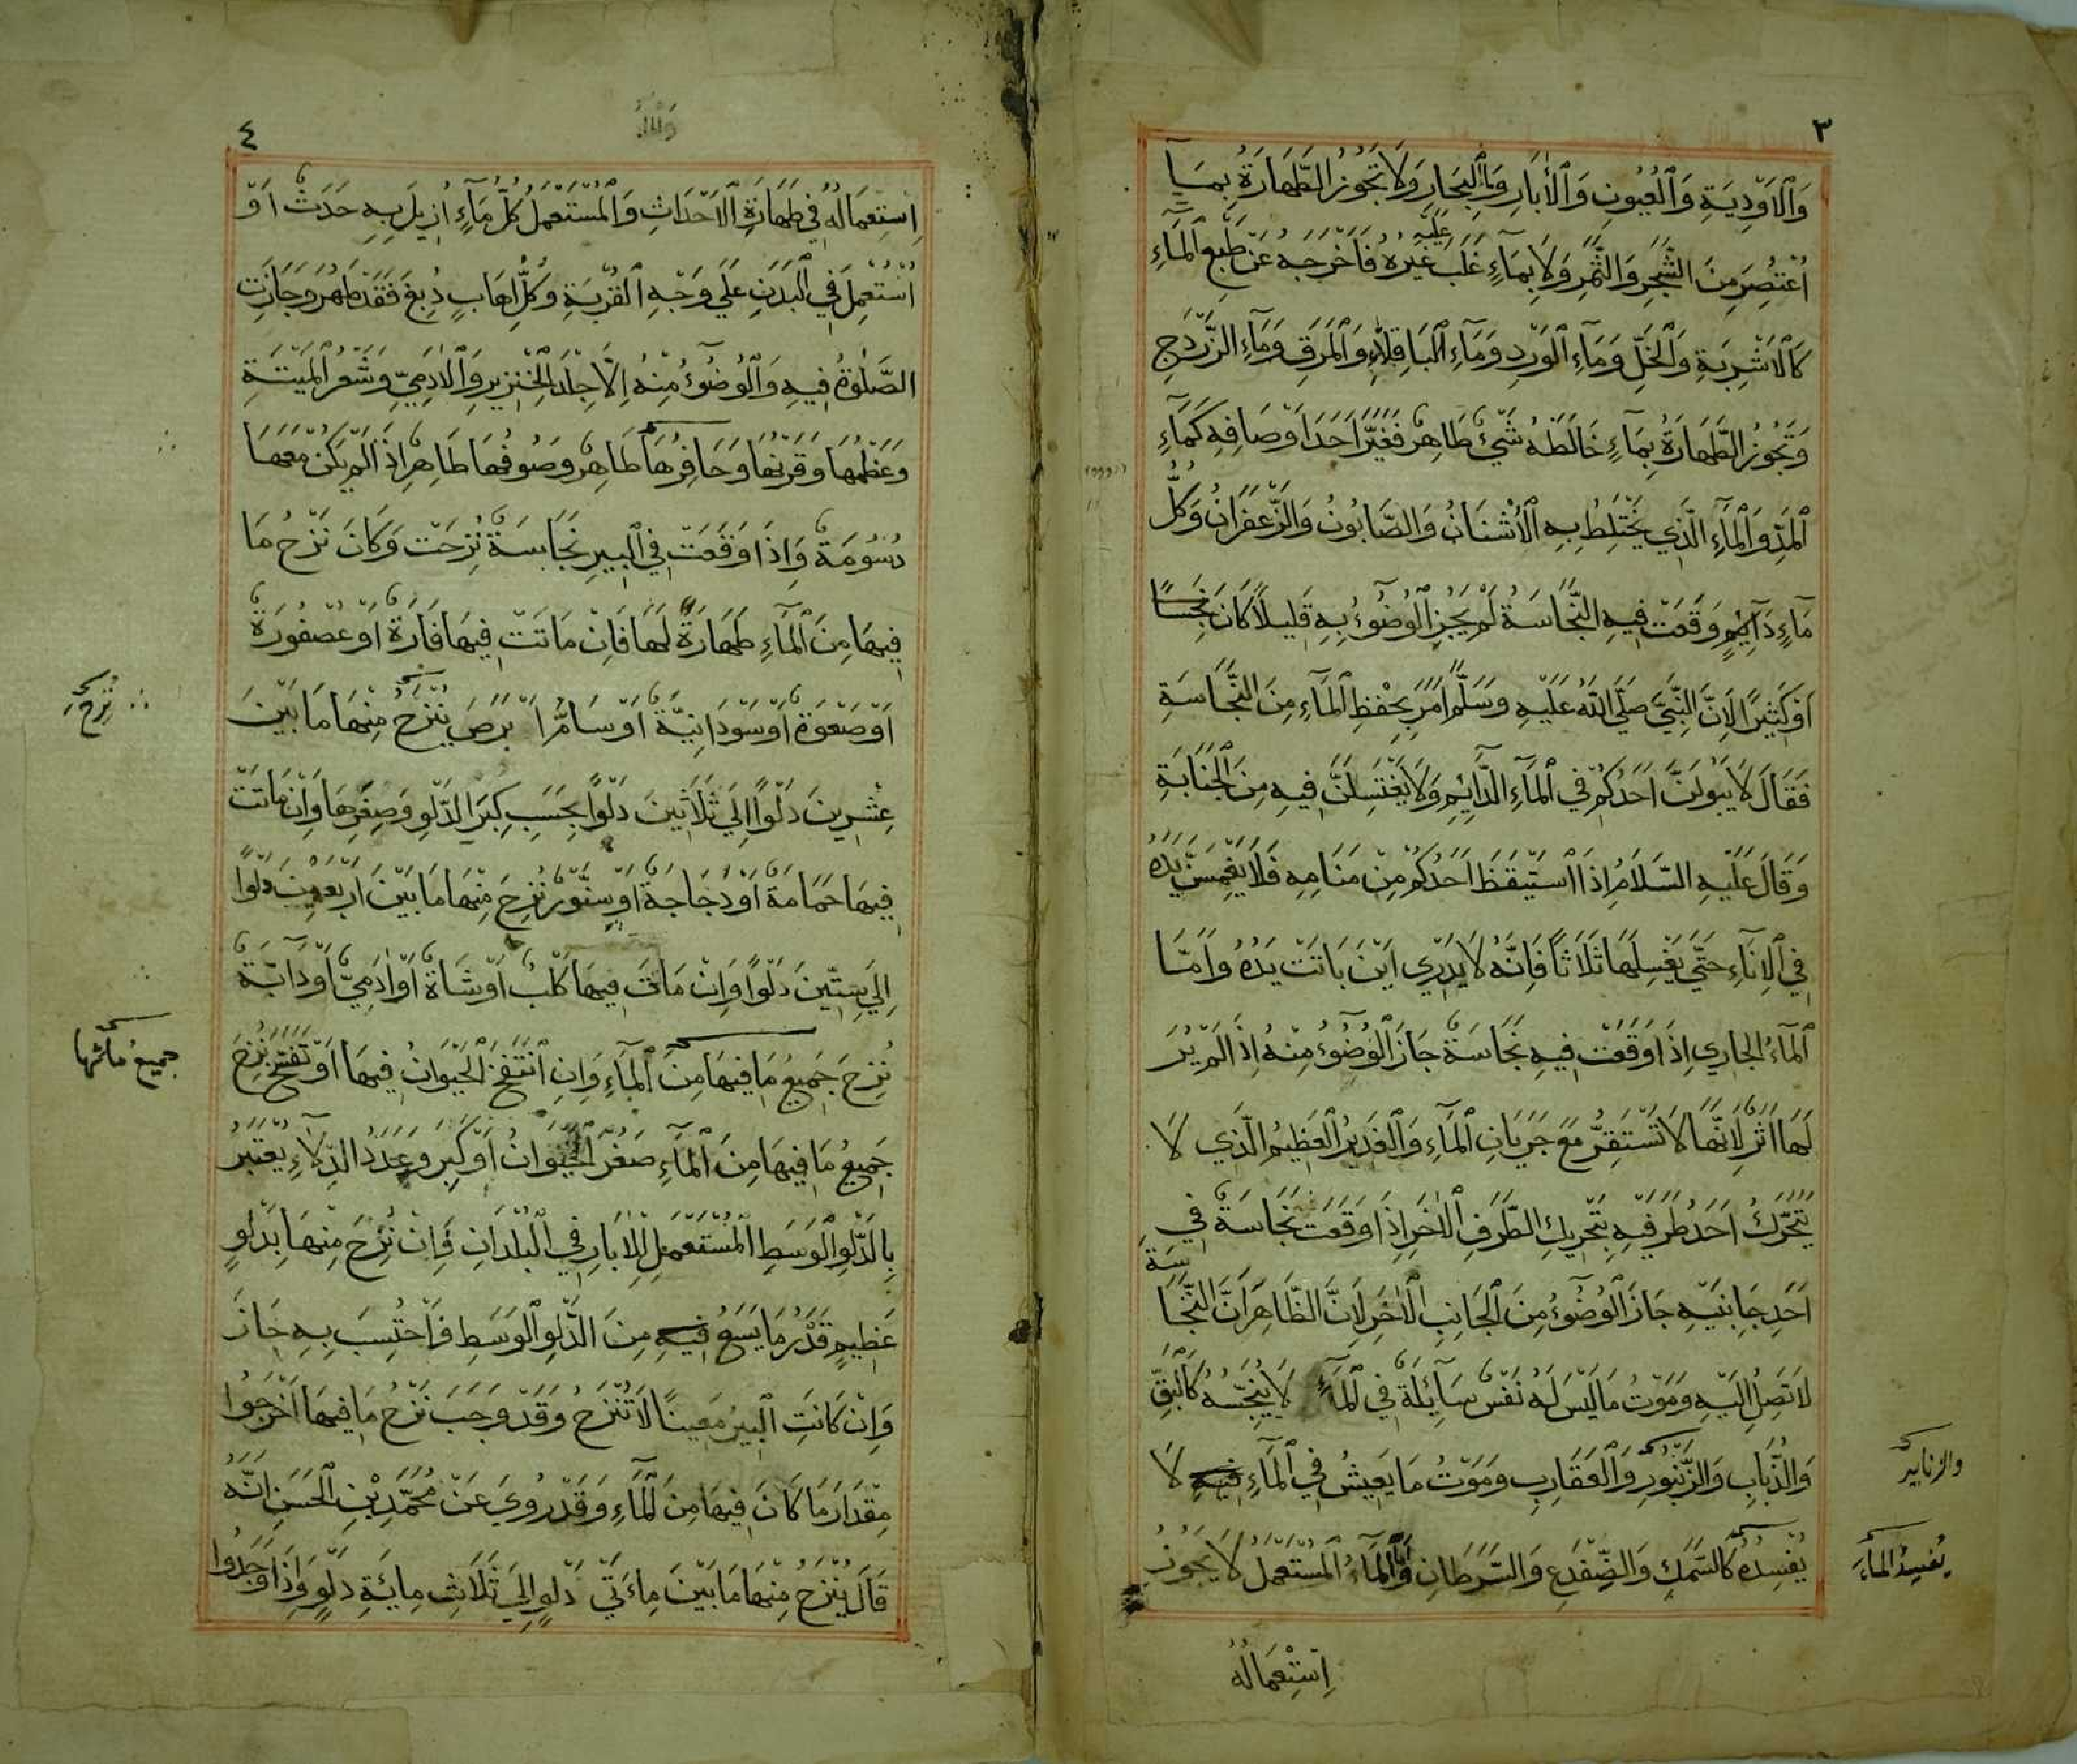 ٣
وَالْاَوْدِيَةِ وَالْعُيُونِ وَالْاٰبَارِ وَمَاْ الْبِحَارِ وَلَا تَجُوزُ الطَّهَارَةُ بِمَآءٍ
عَلَيْهِ
اُعْتُصِرَ مِنَ الشَّجَرِ وَالثَّمَرِ وَلَا بِمَآءٍ غَلَبَ غَيْرُهُ فَاَخْرَجَهُ عَنْ طَبْعِ الْمَآءِ
كَالْاَشْرِبَةِ وَالْخَلِّ وَمَآءِ الْوَرْدِ وَمَآءِ الْبَاقِلَاءِ وَالْمَرَقِ وَمَآءِ الزَّرْدَجِ
وَتَجُوزُ الطَّهَارَةُ بِمَآءٍ خَالَطَهُ شَيْءٌ طَاهِرٌ فَغَيَّرَ اَحَدَ اَوْصَافِهِ كَمَآءِ
الْمَدِّ وَالْمَآءِ الَّذِي يَخْتَلِطُ بِهِ الْاُشْنَانُ وَالصَّابُونُ وَالزَّعْفَرَانُ وَكُلُّ
مَآءٍ دَآئِمٍ وَقَعَتْ فِيهِ النَّجَاسَةُ لَمْ يَجُزِ الْوُضُوْءُ بِهِ قَلِيلًا كَانَ نَجِسًا
اَوْ كَثِيْرًا لِاَنَّ النَّبِيَّ صَلَّى اللّٰهُ عَلَيْهِ وَسَلَّمَ اَمَرَ بِحِفْظِ الْمَآءِ مِنَ النَّجَاسَةِ
فَقَالَ لَا يَبُولَنَّ اَحَدُكُمْ فِي الْمَآءِ الدَّآئِمِ وَلَا يَغْتَسِلَنَّ فِيهِ مِنَ الْجَنَابَةِ
وَقَالَ عَلَيْهِ السَّلَامُ اِذَا اسْتَيْقَظَ اَحَدُكُمْ مِنْ مَنَامِهِ فَلَا يَغْمِسَنَّ يَدَهُ
فِي الْاِنَآءِ حَتَّى يَغْسِلَهَا ثَلَاثًا فَاِنَّهُ لَا يَدْرِي اَيْنَ بَاتَتْ يَدُهُ وَاَمَّا
الْمَآءُ الْجَارِي اِذَا وَقَعَتْ فِيهِ نَجَاسَةٌ جَازَ الْوُضُوْءُ مِنْهُ اِذَا لَمْ يُرَ
لَهَا اَثَرٌ لِاَنَّهَا لَا تَسْتَقِرُّ مَعَ جَرَيَانِ الْمَآءِ وَالْغَدِيْرُ الْعَظِيْمُ الَّذِي لَا
يَتَحَرَّكُ اَحَدُ طَرَفَيْهِ بِتَحْرِيكِ الطَّرَفِ الْاٰخَرِ اِذَا وَقَعَتْ نَجَاسَةٌ فِي
اَحَدِ جَانِبَيْهِ جَازَ الْوُضُوْءُ مِنَ الْجَانِبِ الْاٰخَرِ لِاَنَّ الظَّاهِرَ اَنَّ النَّجَاسَةَ
لَا تَصِلُ اِلَيْهِ وَمَوْتُ مَا لَيْسَ لَهُ نَفْسٌ سَآئِلَةٌ فِي الْمَآءِ لَا يُنَجِّسُهُ كَالْبَقِّ
وَالذُّبَابِ وَالزُّنْبُورِ وَالْعَقَارِبِ وَمَوْتُ مَا يَعِيْشُ فِي الْمَآءِ فِيهِ لَا
والزنابير
يُفْسِدُهُ كَالسَّمَكِ وَالضِّفْدَعِ وَالسَّرَطَانِ وَاَمَّا الْمَآءُ الْمُسْتَعْمَلُ لَا يَجُوزُ
يُفْسِدُ الْمَآءَ
اِسْتِعْمَالُهُ
٤
اِسْتِعْمَالُهُ فِي طَهَارَةِ الْاَحْدَاثِ وَالْمُسْتَعْمَلُ كُلُّ مَآءٍ اُزِيلَ بِهِ حَدَثٌ اَوْ
اسْتُعْمِلَ فِي الْبَدَنِ عَلَى وَجْهِ الْقُرْبَةِ وَكُلُّ اِهَابٍ دُبِغَ فَقَدْ طَهُرَ وَجَازَتِ
الصَّلٰوةُ فِيهِ وَالْوُضُوْءُ مِنْهُ اِلَّا جِلْدَ الْخِنْزِيرِ وَالْاٰدَمِيِّ وَشَعْرُ الْمَيْتَةِ
وَعَظْمُهَا وَقَرْنُهَا وَحَافِرُهَا طَاهِرٌ وَصُوفُهَا طَاهِرٌ اِذَا لَمْ يَكُنْ مَعَهَا
دُسُومَةٌ وَاِذَا وَقَعَتْ فِي الْبِيرِ نَجَاسَةٌ نُزِحَتْ وَكَانَ نَزْحُ مَا
فِيهَا مِنَ الْمَآءِ طَهَارَةً لَهَا فَاِنْ مَاتَتْ فِيهَا فَارَةٌ اَوْ عُصْفُورَةٌ
اَوْ صَعْوَةٌ اَوْ سَوْدَانِيَّةٌ اَوْ سَامُّ اَبْرَصَ يُنْزَحُ مِنْهَا مَا بَيْنَ
نُزِحَ
عِشْرِينَ دَلْوًا اِلَى ثَلَاثِينَ دَلْوًا بِحَسَبِ كِبَرِ الدَّلْوِ وَصِغَرِهَا وَاِنْ مَاتَتْ
فِيهَا حَمَامَةٌ اَوْ دَجَاجَةٌ اَوْ سِنَّوْرٌ نُزِحَ مِنْهَا مَا بَيْنَ اَرْبَعِينَ دَلْوًا
اِلَى سِتِّينَ دَلْوًا وَاِنْ مَاتَ فِيهَا كَلْبٌ اَوْ شَاةٌ اَوْ اٰدَمِيٌّ اَوْ دَآبَّةٌ
نُزِحَ جَمِيعُ مَا فِيهَا مِنَ الْمَآءِ وَاِنِ انْتَفَخَ الْحَيَوَانُ فِيهَا اَوْ تَفَسَّخَ نُزِحَ
جميع مائها
جَمِيعُ مَا فِيهَا مِنَ الْمَآءِ صَغُرَ الْحَيَوَانُ اَوْ كَبُرَ وَعَدَدُ الدِّلَآءِ يُعْتَبَرُ
بِالدَّلْوِ الْوَسَطِ الْمُسْتَعْمَلِ لِلْاٰبَارِ فِي الْبُلْدَانِ فَاِنْ نُزِحَ مِنْهَا بِدَلْوٍ
عَظِيمٍ قَدْرُ مَا يَسَعُ فِيهِ مِنَ الدَّلْوِ الْوَسَطِ فَاحْتُسِبَ بِهِ جَازَ
وَاِنْ كَانَتِ الْبِيرُ مَعِينًا لَا تُنْزَحُ وَقَدْ وَجَبَ نَزْحُ مَا فِيهَا اَخْرَجُوا
مِقْدَارَ مَا كَانَ فِيهَا مِنَ الْمَآءِ وَقَدْ رُوِيَ عَنْ مُحَمَّدِ بْنِ الْحَسَنِ اَنَّهُ
قَالَ يُنْزَحُ مِنْهَا مَا بَيْنَ مِاءَتَيْ دَلْوٍ اِلَى ثَلَاثِ مِائَةِ دَلْوٍ وَاِذَا وَجَدُوا